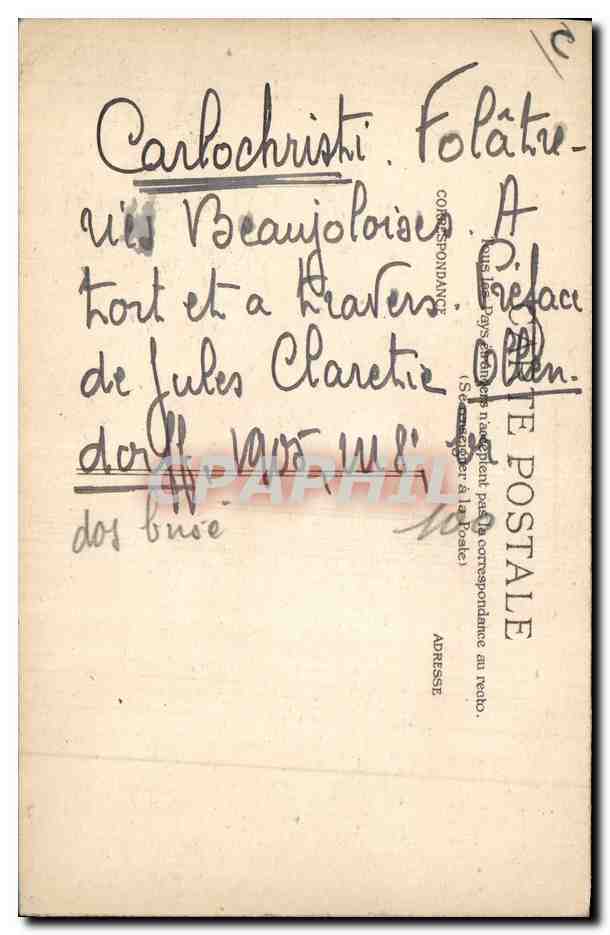 Carlochristi. Folâtre-
ries Beaujoloises. A
tort et a travers. Préface
de Jules Claretie Ollen-
dorff, 1905, in 8°,
dos brisé
100
CARTE POSTALE
Tous les Pays étrangers n'acceptent pas la correspondance au recto.
(Se renseigner à la Poste)
CORRESPONDANCE
ADRESSE
CPAPHIL